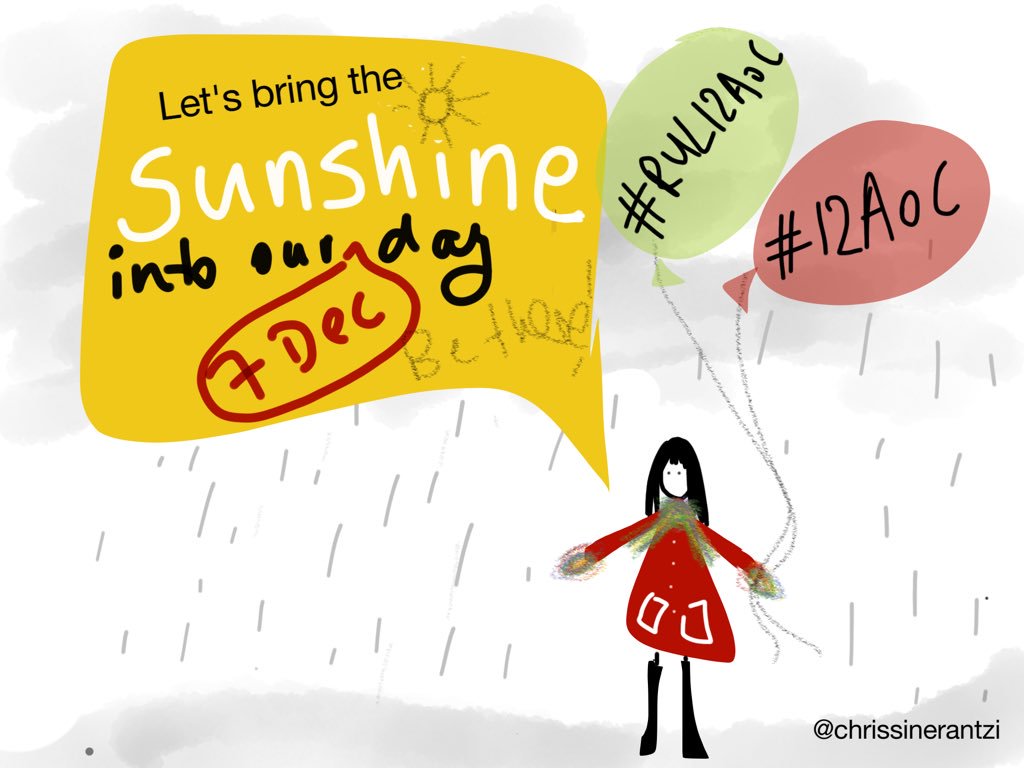 Let's bring the
Sunshine
into our day
7 Dec
Be there
#RUL12AoC
#12AoC
@chrissinerantzi